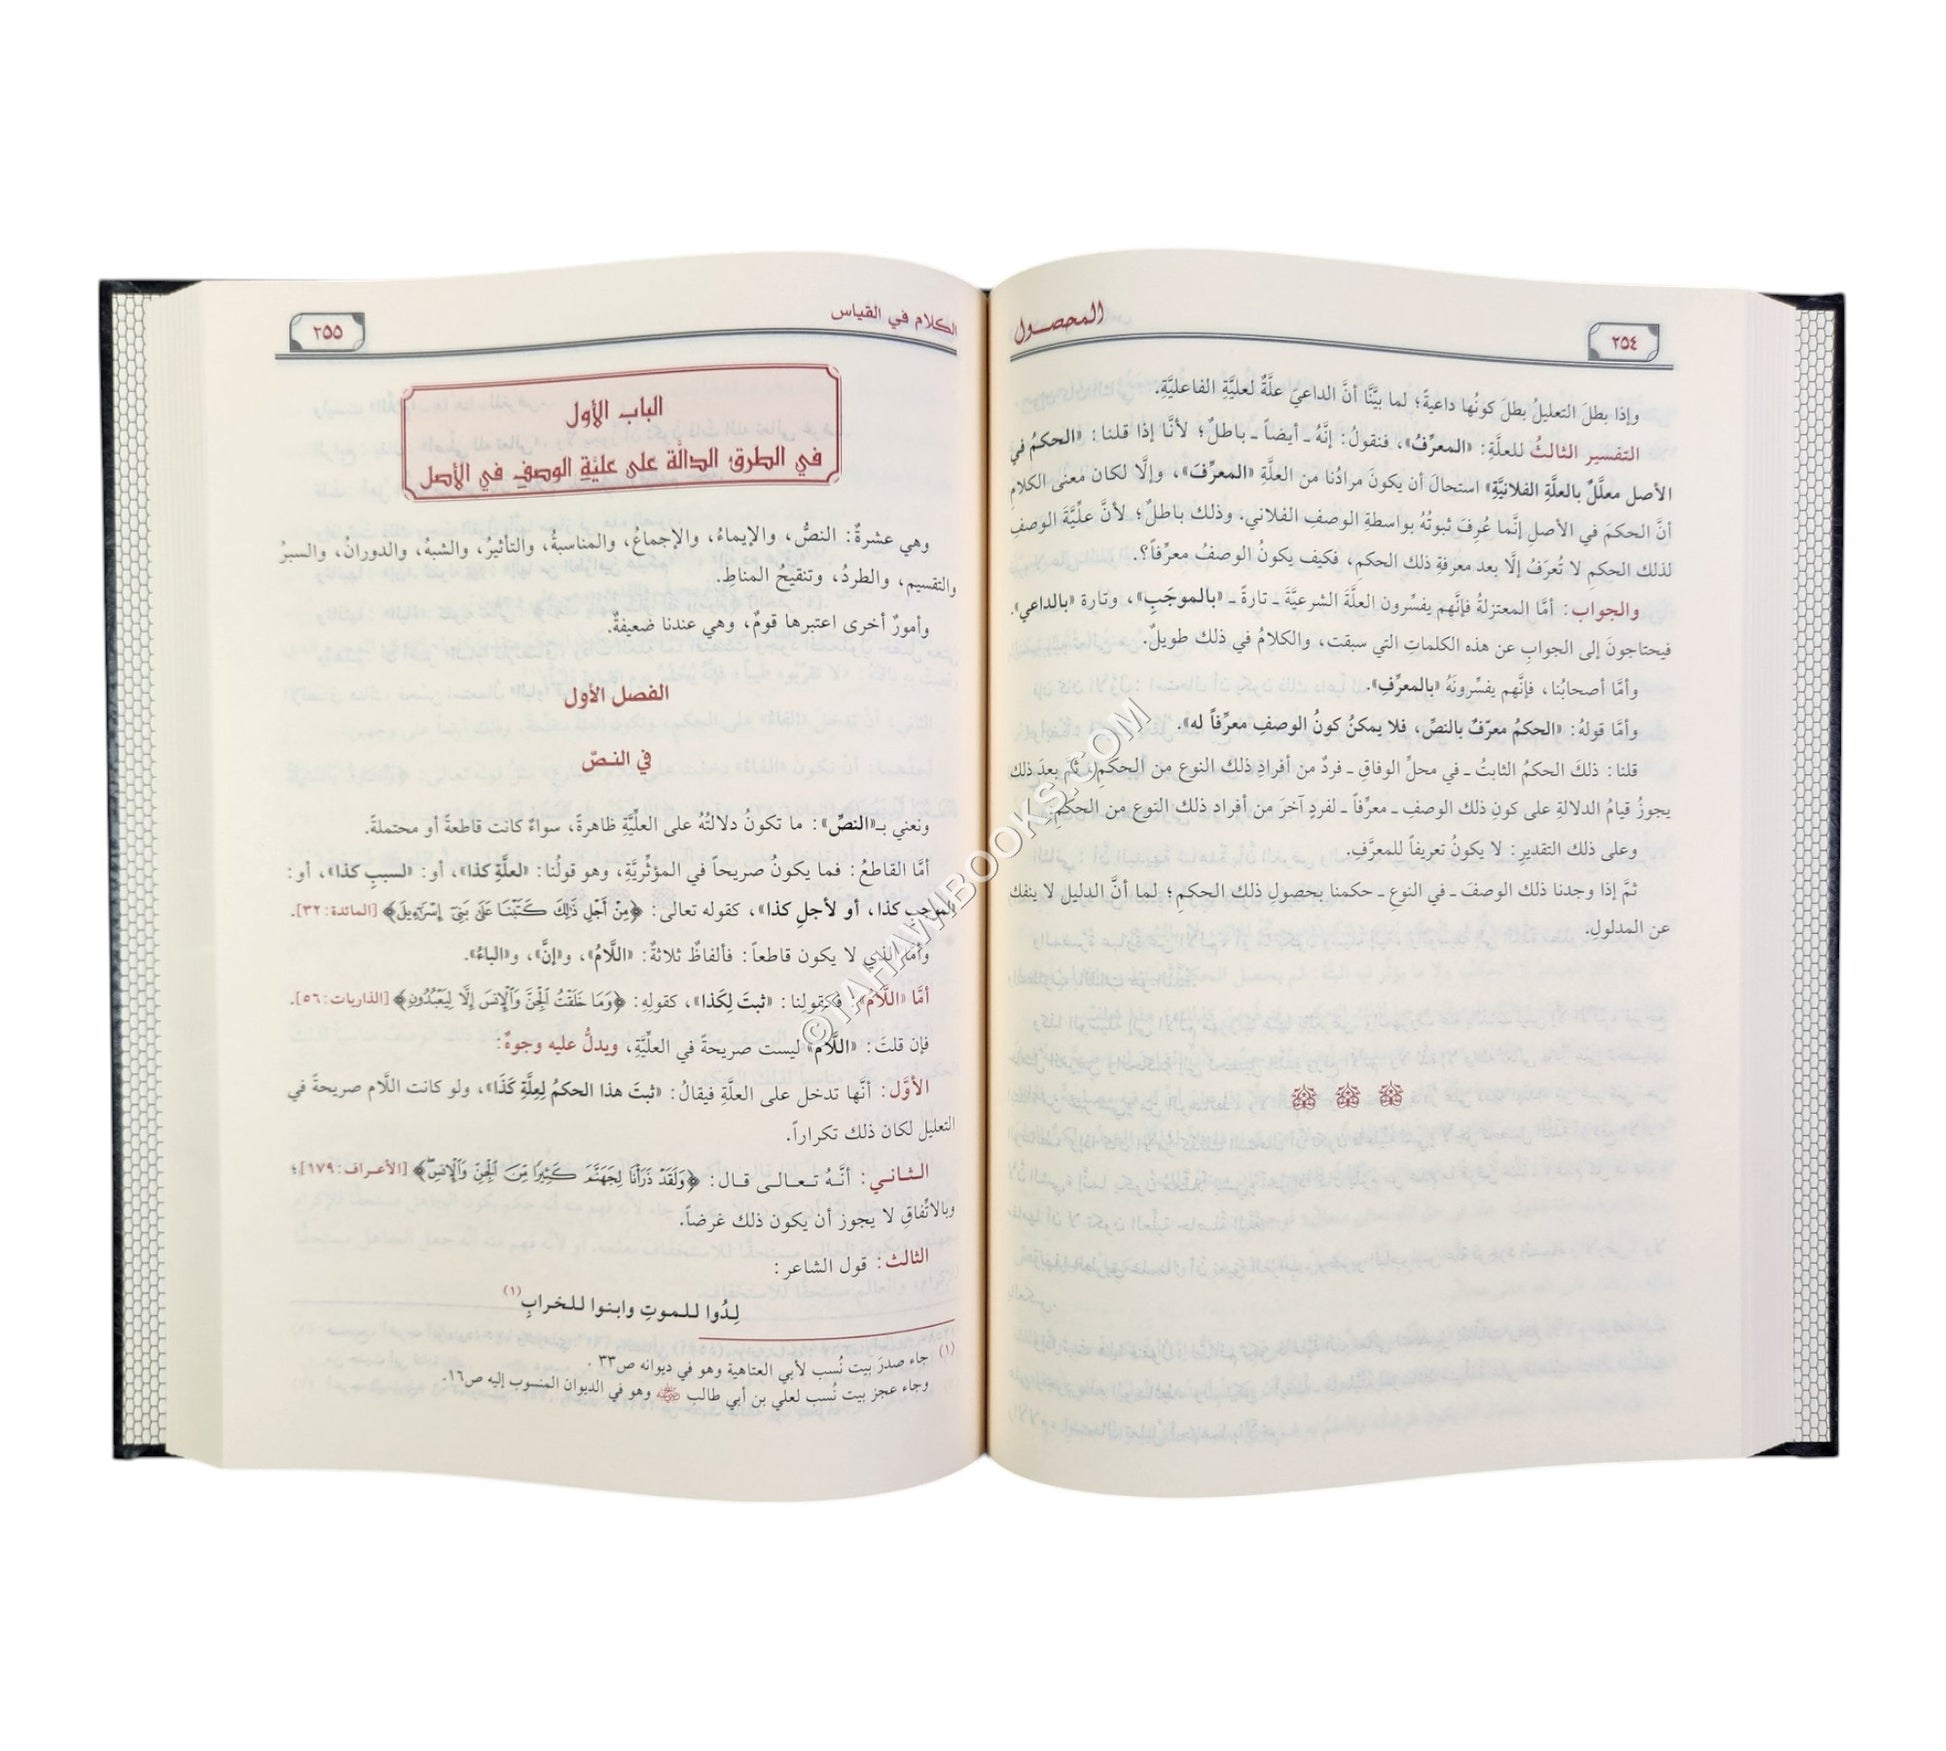 المحصول
٢٥٤
وإذا بطلَ التعليلُ بطلَ كونُها داعيةً؛ لما بيَّنَّا أنَّ الداعيَ علَّةٌ لعليَّةِ الفاعليَّةِ.
التفسير الثالثُ للعلَّةِ: «المعرِّفُ»، فنقولُ: إنَّهُ ـ أيضاً ـ باطلٌ؛ لأنَّا إذا قلنا: «الحكمُ في
الأصل معلَّلٌ بالعلَّةِ الفلانيَّةِ» استحالَ أن يكونَ مرادُنا من العلَّةِ «المعرِّفَ»، وإلَّا لكان معنى الكلامِ
أنَّ الحكمَ في الأصلِ إنَّما عُرِفَ ثبوتُهُ بواسطةِ الوصفِ الفلاني. وذلك باطلٌ؛ لأنَّ علِّيَّةَ الوصفِ
لذلك الحكمِ لا تُعرَفُ إلَّا بعد معرفةِ ذلك الحكمِ، فكيف يكونُ الوصفُ معرِّفاً؟.
والجواب: أمَّا المعتزلةُ فإنَّهم يفسِّرون العلَّةَ الشرعيَّةَ ـ تارةً ـ «بالموجَبِ»، وتارة «بالداعي».
فيحتاجونَ إلى الجوابِ عن هذه الكلماتِ التي سبقت، والكلامُ في ذلك طويلٌ.
وأمَّا أصحابُنا، فإنَّهم يفسِّرونَهُ «بالمعرِّفِ».
وأمَّا قولهُ: «الحكمُ معرّفٌ بالنصِّ، فلا يمكنُ كونُ الوصفِ معرِّفاً له».
قلنا: ذلكَ الحكمُ الثابتُ ـ في محلِّ الوفاقِ ـ فردٌ من أفرادِ ذلك النوع من الحكمِ، ثمَّ بعدَ ذلك
يجوزُ قيامُ الدلالةِ على كونِ ذلك الوصفِ ـ معرِّفاً ـ لفردٍ آخرَ من أفراد ذلك النوع من الحكمِ.
وعلى ذلك التقديرِ: لا يكونُ تعريفاً للمعرَّفِ.
ثمَّ إذا وجدنا ذلك الوصفَ ـ في النوعِ ـ حكمنا بحصولِ ذلك الحكمِ؛ لما أنَّ الدليل لا ينفك
عن المدلولِ.
الكلام في القياس
٢٥٥
الباب الأول
في الطرق الدالَّة على عليَّةِ الوصفِ في الأصل
وهي عشرةٌ: النصُّ، والإيماءُ، والإجماعُ، والمناسبةُ، والتأثيرُ، والشبهُ، والدورانُ، والسبرُ
والتقسيم، والطردُ، وتنقيحُ المناطِ.
وأمورٌ أخرى اعتبرها قومٌ، وهي عندنا ضعيفةٌ.
الفصل الأول
في النصّ
ونعني بـ«النصِّ»: ما تكونُ دلالتُهُ على العلِّيَّةِ ظاهرةً، سواءٌ كانت قاطعةً أو محتملةً.
أمَّا القاطعُ: فما يكونُ صريحاً في المؤثِّريَّةِ، وهو قولُنا: «لعلَّةِ كذا»، أو: «لسببِ كذا»، أو:
لموجبِ كذا، أو لأجلِ كذا»، كقوله تعالى: ﴿مِنْ أَجْلِ ذَٰلِكَ كَتَبْنَا عَلَىٰ بَنِىٓ إِسْرَٰٓءِيلَ﴾ [المائدة: ٣٢].
وأمَّا الذي لا يكون قاطعاً: فألفاظٌ ثلاثةٌ: «اللَّامُ»، و«إنَّ»، و«الباءُ».
أمَّا «اللَّامُ»: فكقولِنا: «ثبتَ لِكَذا»، كقولِهِ: ﴿وَمَا خَلَقْتُ ٱلْجِنَّ وَٱلْإِنسَ إِلَّا لِيَعْبُدُونِ﴾ [الذاريات: ٥٦].
فإن قلتَ: «اللَّام» ليست صريحةً في العليَّةِ، ويدلُّ عليه وجوهٌ:
الأوَّل: أنَّها تدخل على العلَّةِ فيقالُ: «ثبتَ هذا الحكمُ لِعلَّةِ كَذَا»، ولو كانت اللَّام صريحةً في
التعليل لكان ذلك تكراراً.
الثاني: أنَّهُ تعالى قال: ﴿وَلَقَدْ ذَرَأْنَا لِجَهَنَّمَ كَثِيرًا مِّنَ ٱلْجِنِّ وَٱلْإِنسِ﴾ [الأعراف: ١٧٩]؛
وبالاتِّفاقِ لا يجوز أن يكون ذلك غرضاً.
الثالث: قول الشاعر:
لِدُوا للموتِ وابنوا للخرابِ(١)
(١) جاء صدرَ بيت نُسب لأبي العتاهية وهو في ديوانه ص٣٣.
وجاء عجز بيت نُسب لعلي بن أبي طالب وهو في الديوان المنسوب إليه ص١٦.
©TAHAWIBOOKS.COM